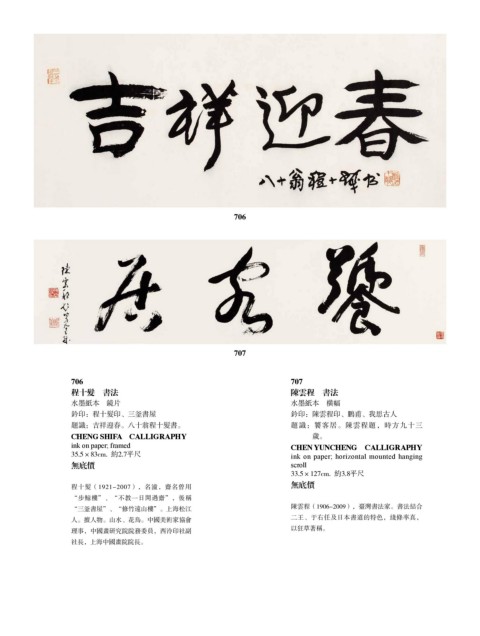 吉祥迎春
八十翁程十髮書
706
饗客居
707
706
程十髮　書法
水墨紙本　鏡片
鈐印：程十髮印、三釜書屋
題識：吉祥迎春。八十翁程十髮書。
CHENG SHIFA CALLIGRAPHY
ink on paper, framed
35.5 × 83cm. 約2.7平尺
無底價
程十髮（1921-2007），名潼，齋名曾用
“步鯨樓”、“不教一日閒過齋”，後稱
“三釜書屋”、“修竹遠山樓”。上海松江
人。擅人物、山水、花鳥。中國美術家協會
理事，中國畫研究院院務委員，西泠印社副
社長，上海中國畫院院長。
707
陳雲程　書法
水墨紙本　橫幅
鈐印：陳雲程印、鵬甫、我思古人
題識：饗客居。陳雲程題，時方九十三
歲。
CHEN YUNCHENG CALLIGRAPHY
ink on paper; horizontal mounted hanging
scroll
33.5 × 127cm. 約3.8平尺
無底價
陳雲程（1906-2009），臺灣書法家。書法結合
二王、于右任及日本書道的特色，綫條率真，
以狂草著稱。